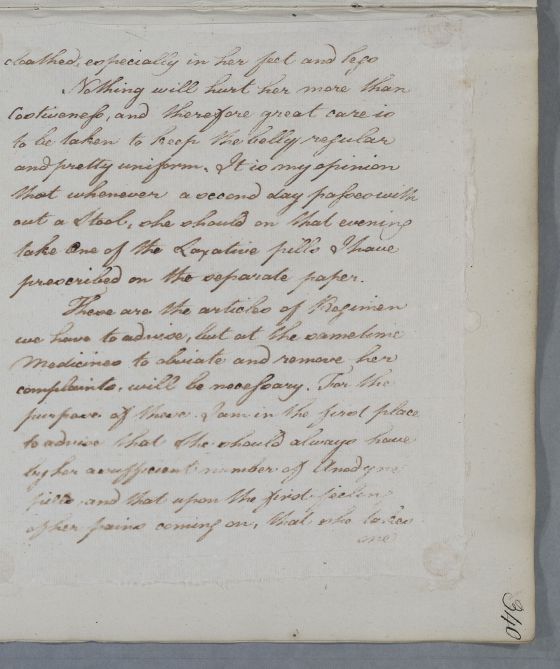 cloathed, especially in her feet and legs
Nothing will hurt her more than
Costiveness, and therefore great care is
to be taken to keep the belly regular
and pretty uniform. It is my opinion
that whenever a second day passes with
out a Stool, she should on that evening
take One of the Laxative pills I have
prescribed on the separate paper.
These are the articles of Regimen
we have to advise, but at the sametime
Medicines to obviate and remove her
complaints, will be necessary. For the
purpose of these I am in the first place
to advise that she should always have
by her a sufficient number of Anodyne
pills and that upon the first feeling
of her pains coming on, that she takes
one
340